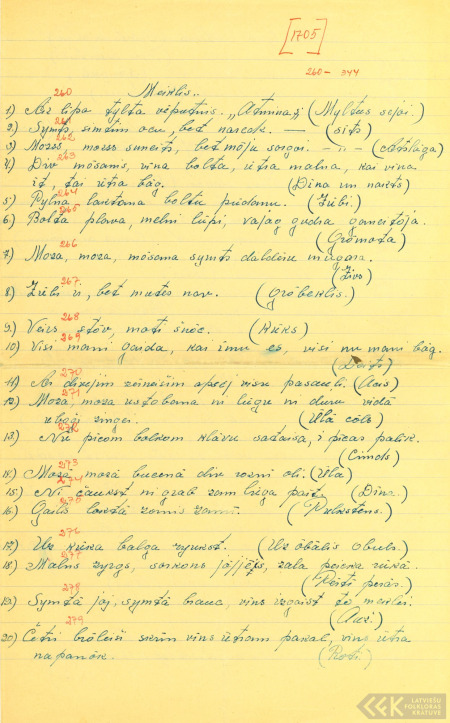 [1705]
260 - 344
260
Meiklis.
1) Ar lipa tylta veputnis. "Atmiņa": (Myltus sejoi.)
261
2) Symts, simtim ocu, bet naredz. — (sits)
262
3) Mozs, mozs suneits, bet mōju sorgoi. - " - (Atslāga)
263
4) Div mōsams, vina bolta, ūtra malna, kai vina
it, tai ūtra bāg. (Dina un nakts)
264
5) Pylna lavetana boltu pūdanu. (Zūbi.)
265
6) Bolta plova, melni lūpi, vajag gudra ganeitōja.
(Grōmota)
266
7) Moza, moza, mōsama symts dalderu mugora.
(Zivs)
267.
8) Zūbi ir, bet mutes nav. (Grōbeklis.)
268
9) Veirs stōv, mati
(Kūks)
269
10) Visi mani gaida, kai īmu es, visi nu mani bāg.
270
11) Ar divejim zeineišim apeej visu pasauli. (Acis)
271
12) Moza, moza ustobena ni lūgu ni duru vidā
zingei. (Ūla cōls)
272
13) Nu picom bolkom klāvu sataisa, i picas palīk.
(Cimds)
273
14) Mozā mozā bucenā div rozni oli. (Ūla)
274
15) Ni čaukst ni grab zam lūga paīt. (Dina.)
275
16) Gaiļs zamis zamī. (Pulkstens.)
276
17) Uz kūka balga (Uz ōbālis ōbuls.)
277
18) Malns zyrgs, sorkons jōjējs, zaļa
278
19) Symtā jōj, symtā brauc, vins izgaist
279
20) Četri brōleiši skrin vins ūtram pakaļ, vins ūtra
napanōk. (Roti.)
LATVIEŠU
FOLKLORAS
KRĀTUVE